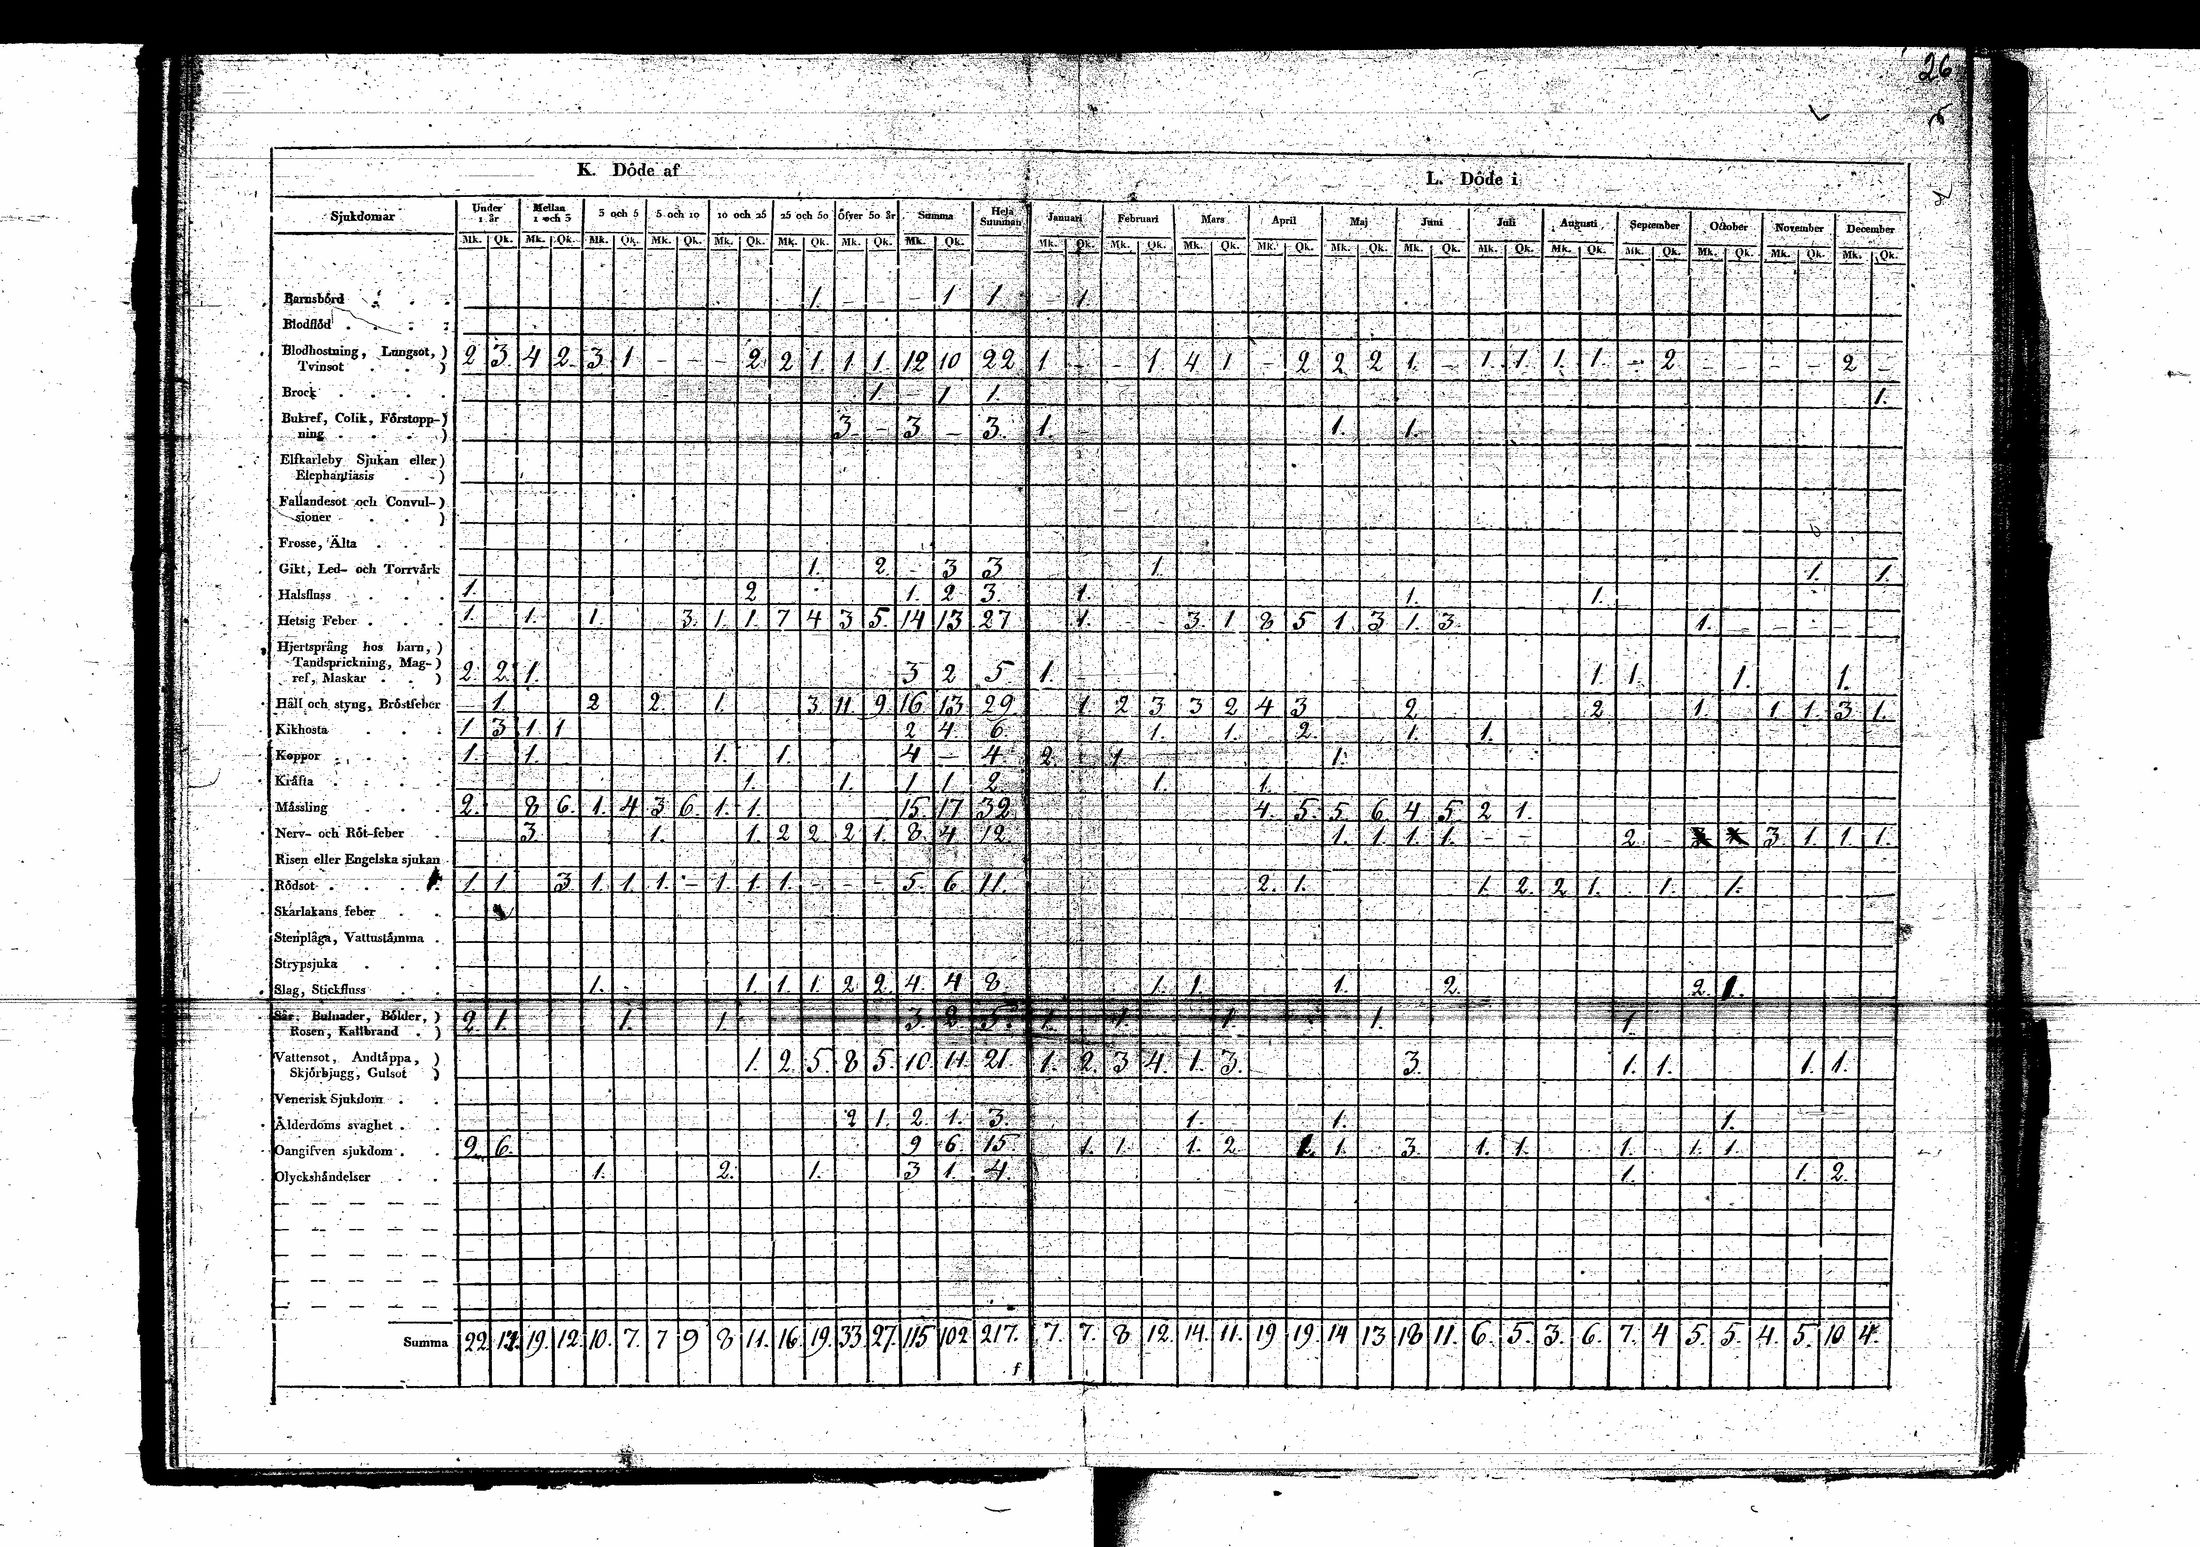 26
K. Döde af L. Döde i
Sjukdomar Under 1 år Mellan 1 och 3 3 och 5 5 och 10 10 och 25 25 och 50 öfver 50 år Summa Hela Summan Januari Februari Mars April Maj Juni Juli Augusti September October November December
Mk. Qk. Mk. Qk. Mk. Qk. Mk. Qk. Mk. Qk. Mk. Qk. Mk. Qk. Mk. Qk. Mk. Qk. Mk. Qk. Mk. Qk. Mk. Qk. Mk. Qk. Mk. Qk. Mk. Qk. Mk. Qk. Mk. Qk. Mk. Qk. Mk. Qk. Mk. Qk.
Barnsbörd . . . 1. - - - 1 1 - 1.
Blodflöd . . . .
Blodhostning, Lungsot, )
Tvinsot . . ) 2 3. 4 2. 3. 1 - - - 2. 2 1. 1 1. 12 10 22 1 - - 1. 4 1 - 2 2 2 1. - 1. 1. 1. 1. - 2 - - - - 2 -
Brock . . . . 1. - 1 1. 1.
Bukref, Colik, Förstopp-)
ning . . . . ) 3. - 3 - 3. 1. - 1. 1.
Elfkarleby Sjukan eller)
Elephantiasis . -)
Fallandesot och Convul-)
sioner . . )
Frosse, Älta . . .
Gikt, Led- och Torrvärk 1. 2. - 3 3 1. 1. 1.
Halsfluss . . . . 1. 2 1. 2 3. 1. 1. 1.
Hetsig Feber . . . 1. 1. 1. 3. 1. 1. 7 4 3 5. 14 13 27 1. - - 3. 1. 8 5 1. 3 1. 3. 1. - - - - -
Hjertspräng hos barn, )
Tandsprickning, Mag- )
ref, Maskar . . ) 2. 2. 1. 3 2 5. 1. 1. 1. 1. 1.
Håll och styng, Bröstfeber - 1. 2 2. 1. 3. 11 9 16 13 29 1. 2 3 3 2 4 3 2 2 1. 1 1. 3 1.
Kikhosta . . . 1 3 1 1 2 4. 6 1. 1. 2. 1. 1.
Koppor . . . . 1. 1. 1. 1. 4 - 4 2. 1 1.
Kräfta . . . . 1. 1. 1 1. 2 1. 1.
Mässling . . . 2. 8 6. 1. 4 3 6. 1. 1. 15. 17 32 4. 5. 5. 6 4 5. 2 1.
Nerv- och Röt-feber . 3. 1. 1. 2 2 2 1. 8. 4 12. 1. 1. 1. 1. - - 2. - 3. 1. 1. 1.
Risen eller Engelska sjukan
Rödsot . . . . 1. 1. 3. 1. 1. 1. - 1. 1. 1. - - - 5. 6 11. 2. 1. 1. 2. 2 1. 1. 1.
Skarlakans feber . .
Stenplåga, Vattustämma .
Strypsjuka . . .
Slag, Stickfluss . . 1. - 1. 1. 1. 2 2. 4. 4 8 1. 1. 1. 2. 2. 1.
Sår, Bulnader, Bölder, )
Rosen, Kallbrand . ) 2. 1. 1. 1. 3. 2 5. 1. 1. 1. 1. 1.
Vattensot, Andtäppa, )
Skjörbjugg, Gulsot ) 1. 2. 5 8 5. 10. 11. 21. 1. 2. 3 4. 1. 3. 3. 1. 1. 1. 1.
Venerisk Sjukdom . .
Ålderdoms svaghet . . 2 1. 2. 1. 3. 1. 1. 1.
Oangifven sjukdom . . 9. 6. 9 6. 15. 1. 1. 1. 2. 1. 1. 3. 1. 1. 1. 1. 1.
Olyckshändelser . . 1. 2. 1. 3 1. 4. 1. 1. 2.
Summa 22. 19. 12. 10. 7. 7 9 8 11. 16. 19. 33. 27. 115 102 217. 7. 7. 8 12. 14. 11. 19 19. 14 13 18 11. 6. 5. 3. 6. 7. 4 5. 5. 4. 5. 10 4.